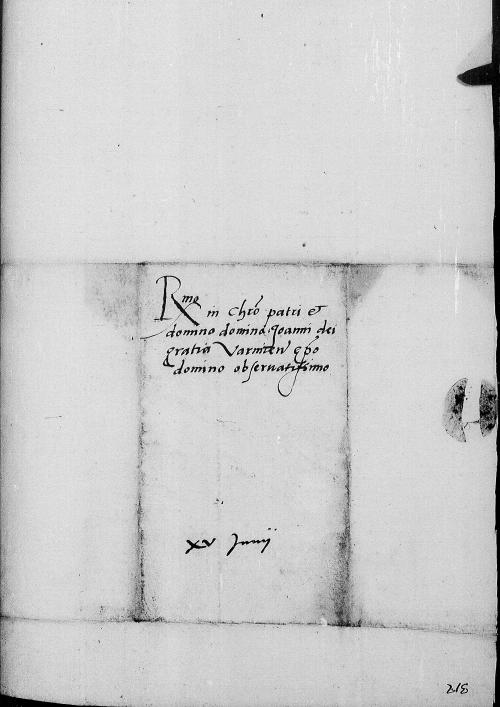 Rmo in Chro patri et
domino domino Joanni dei
gratia Varmien epo
domino observatissimo
xv Junij
218